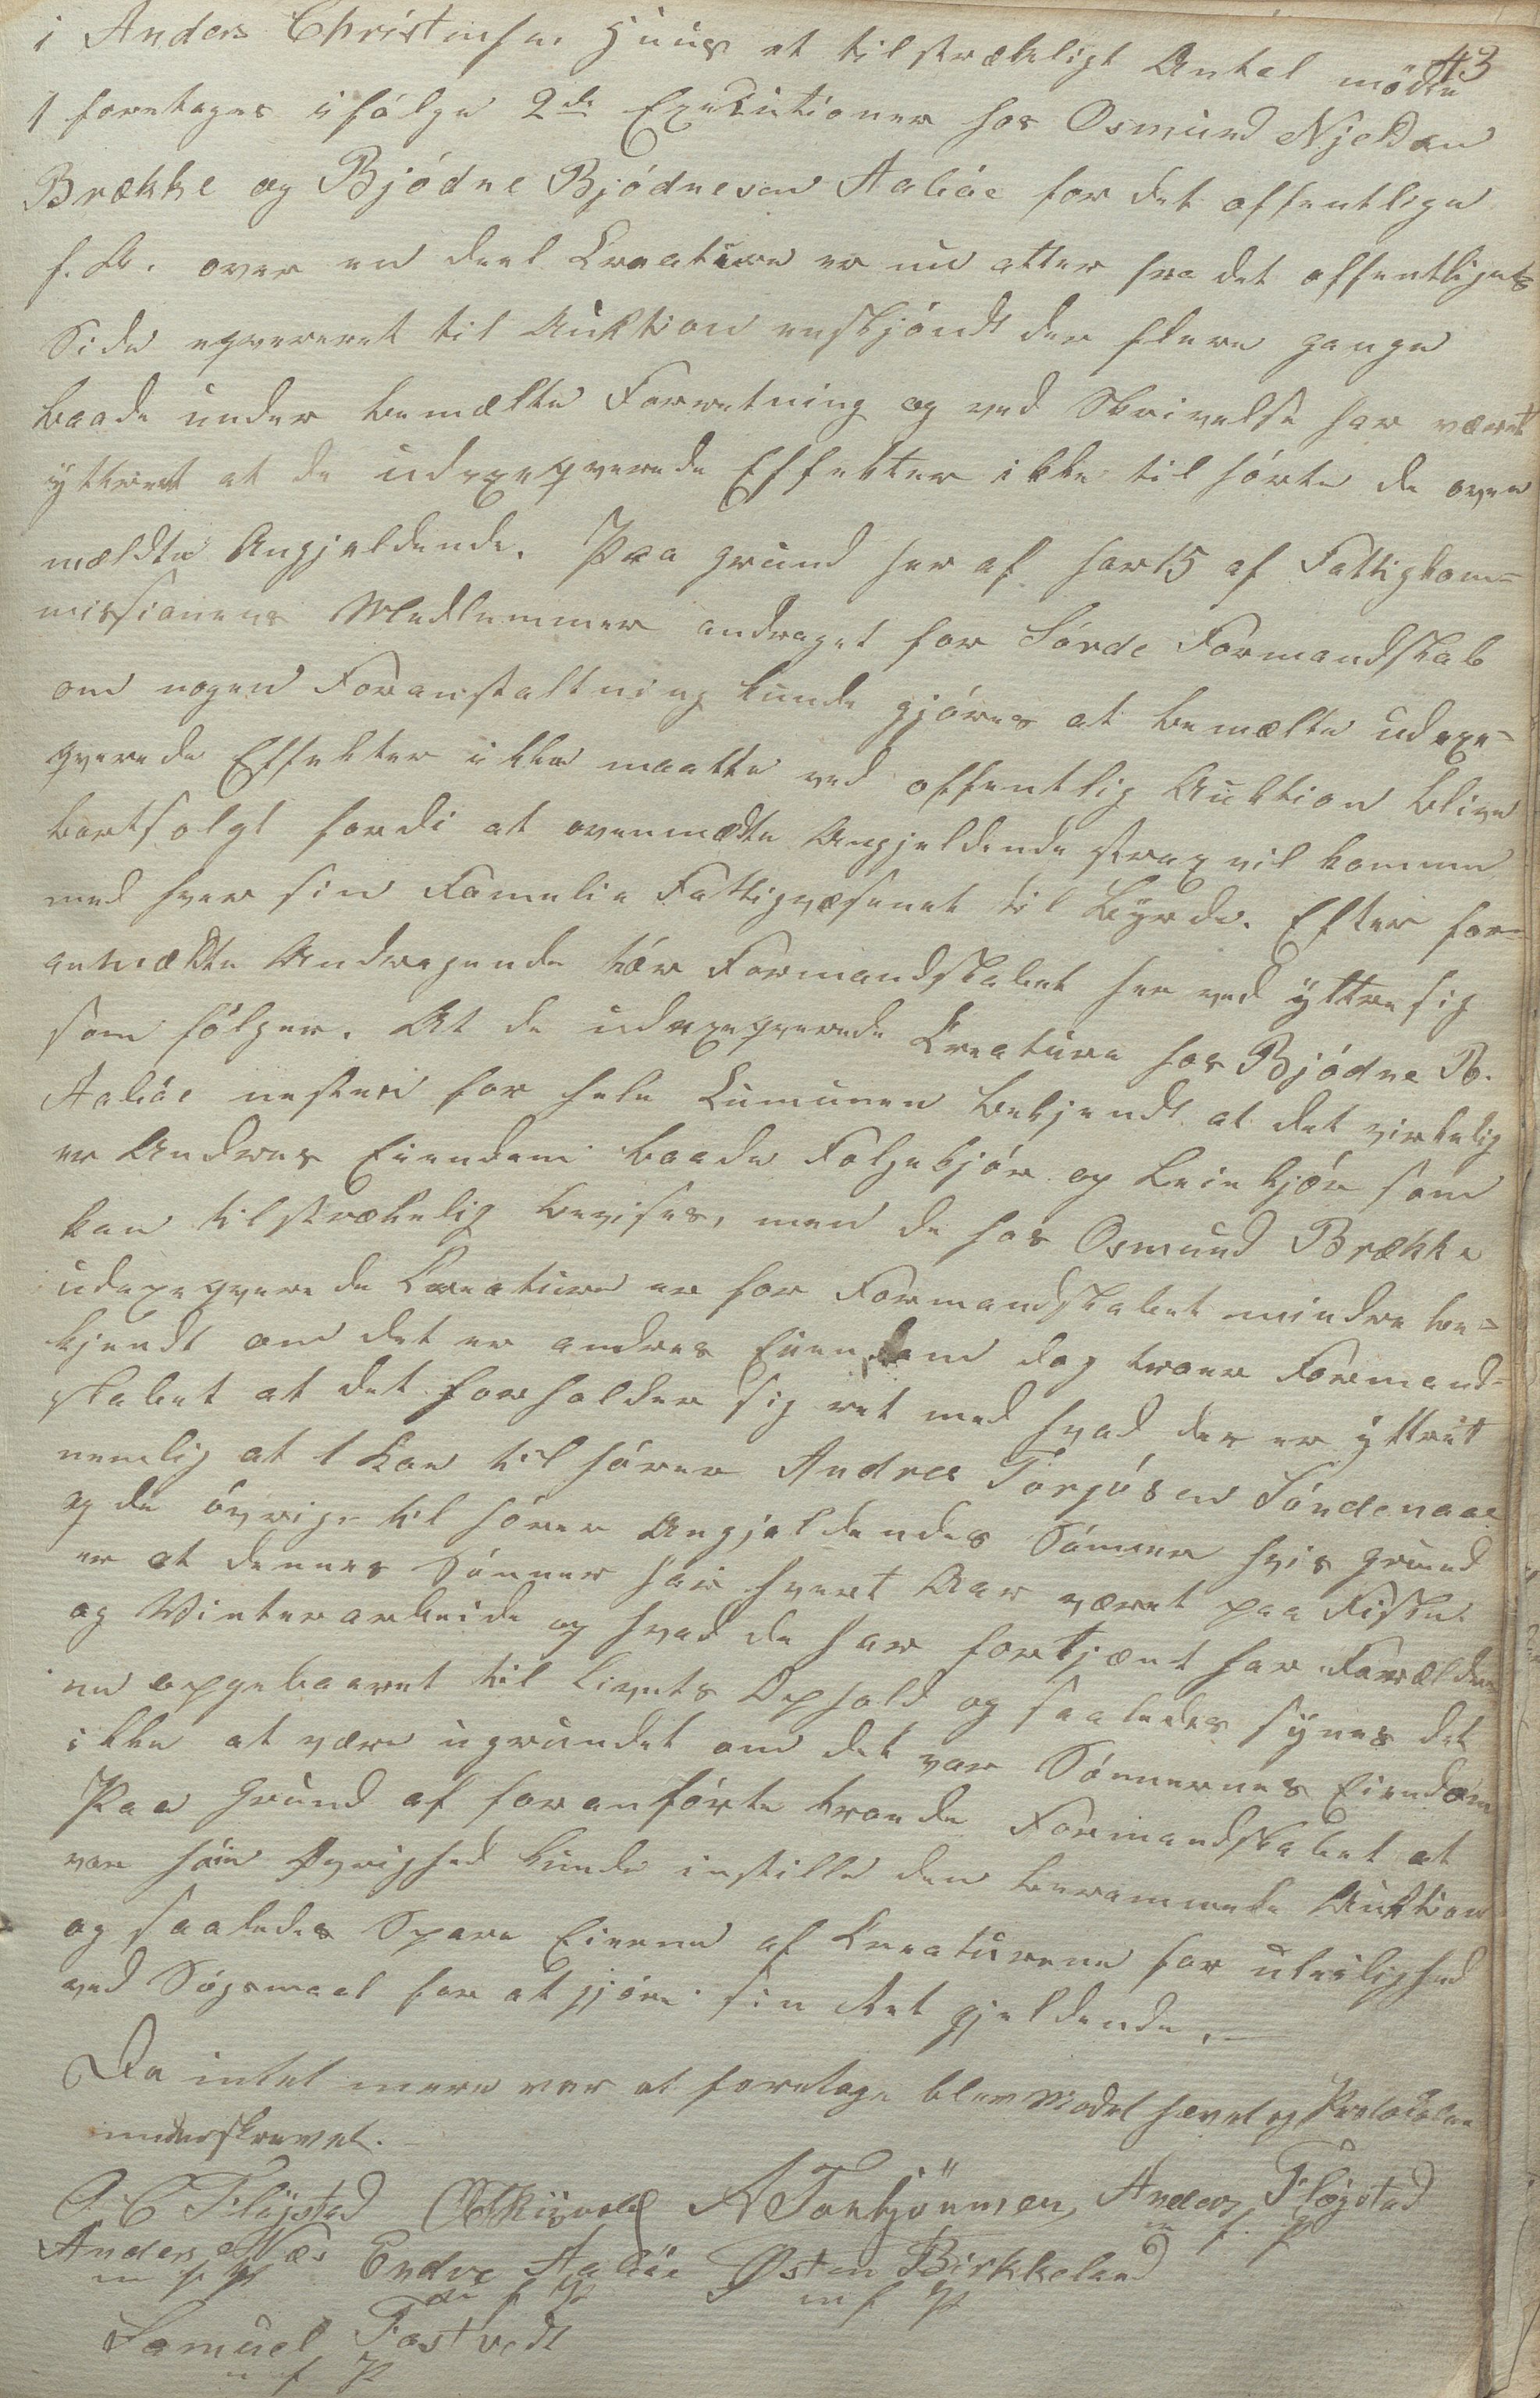 43
i Anders Christensens Huus et tilstrækkeligt Antal mödte
1 foretages ifölge 2de Executioner hos Osmund Njeldsen
Brække og Bjödne Bjödnesen Aaliöe for det offentlige
f. A. over en deel Creature er nu atter fra det offentliges
Side eqvereret til Auktion enskjöndt der flere gange
baade under bemælte Forretning og ved Skrivelse har været
ÿttret at de udexeqverede Effekter ikke tilhörte de oven
mældte Angjeldende. Paa grund her af har 15 af Fattigkom=
missionens Medlemmer andraget for Sörde Formandskab
om nogen Foranstaltning kunde gjöres at bemælte udexe=
qverede Effekter ikke maatte ved offentlig Auktion blive
bortsolgt fordi at ovenmædte Angjeldende strax vil komme
med hver sin Familie Fattigvæsenet til Byrde. Efter for=
anmældte Andragende tör Formandskabet her ved ÿttre sig
som fölger. At de udexeqverede Creature hos Bjödne B.
Aaliöe nesten for hele Cumunen bekjendt at det virkelig
er Andres Eiendom baade Folgekjör og Leiekjör som
kan tilstrækelig bevises, men de hos Osmund Brække
udexeqverede Creature er for Formandskabet mindre be=
kjendt om det er andres Eiendom dog troer Formand=
skabet at det forholder sig ret med hvad der er ÿttret
nemlig at 1 Koe tilhörer Andres Torjösen Söndenaae
og de övrige tilhörer Angjeldendes Sönner hvis grund
er at dennes Sönner har hvert Aar været paa Fiske
og Vinterarbeide og hvad de har fortjænt har Forældre
ne opgebaaret til Livets Ophold og saaledes synes det
ikke at være ugrundet om det var Sönnernes Eiendom
Paa Grund af foranförte troede Formandskabet at
vor höie Övrighed kunde instille den berammede Auktion
og saaledes Spare Eierne af Creaturene for uleilighed
ved Sögsmaal for at gjöre sin Ret gjeldende.
Da intet mere var at foretage blev Mödet hævet og Protocolen
underskrevet.
O. C. Flögstad A Torkjönnsen Anders Flögstad
m f P
Anders Næs Endre Aaliöe Østen Birkkeland
m f P m f P m f P
Samuel Fostvedt
m f P